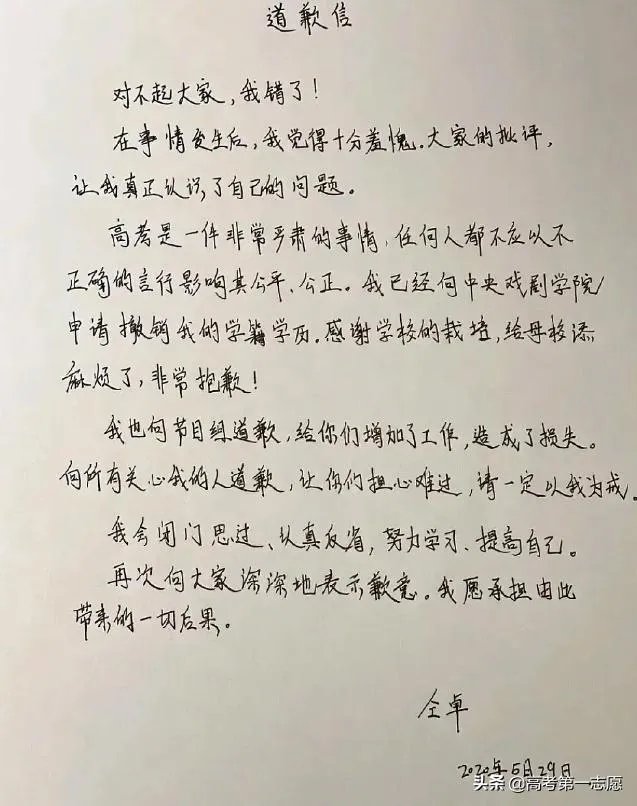 道歉信
对不起大家，我错了！
在事情发生后，我觉得十分羞愧。大家的批评，
让我真正认识了自己的问题。
高考是一件非常严肃的事情，任何人都不应以不
正确的言行影响其公平、公正。我已经向中央戏剧学院
申请撤销我的学籍学历。感谢学校的栽培，给母校添
麻烦了，非常抱歉！
我也向节目组道歉，给你们增加了工作，造成了损失。
向所有关心我的人道歉，让你们担心难过，请一定以我为戒。
我会闭门思过、认真反省，努力学习、提高自己。
再次向大家深深地表示歉意。我愿承担由此
带来的一切后果。
仝卓
2020年5月29日
头条 @高考第一志愿